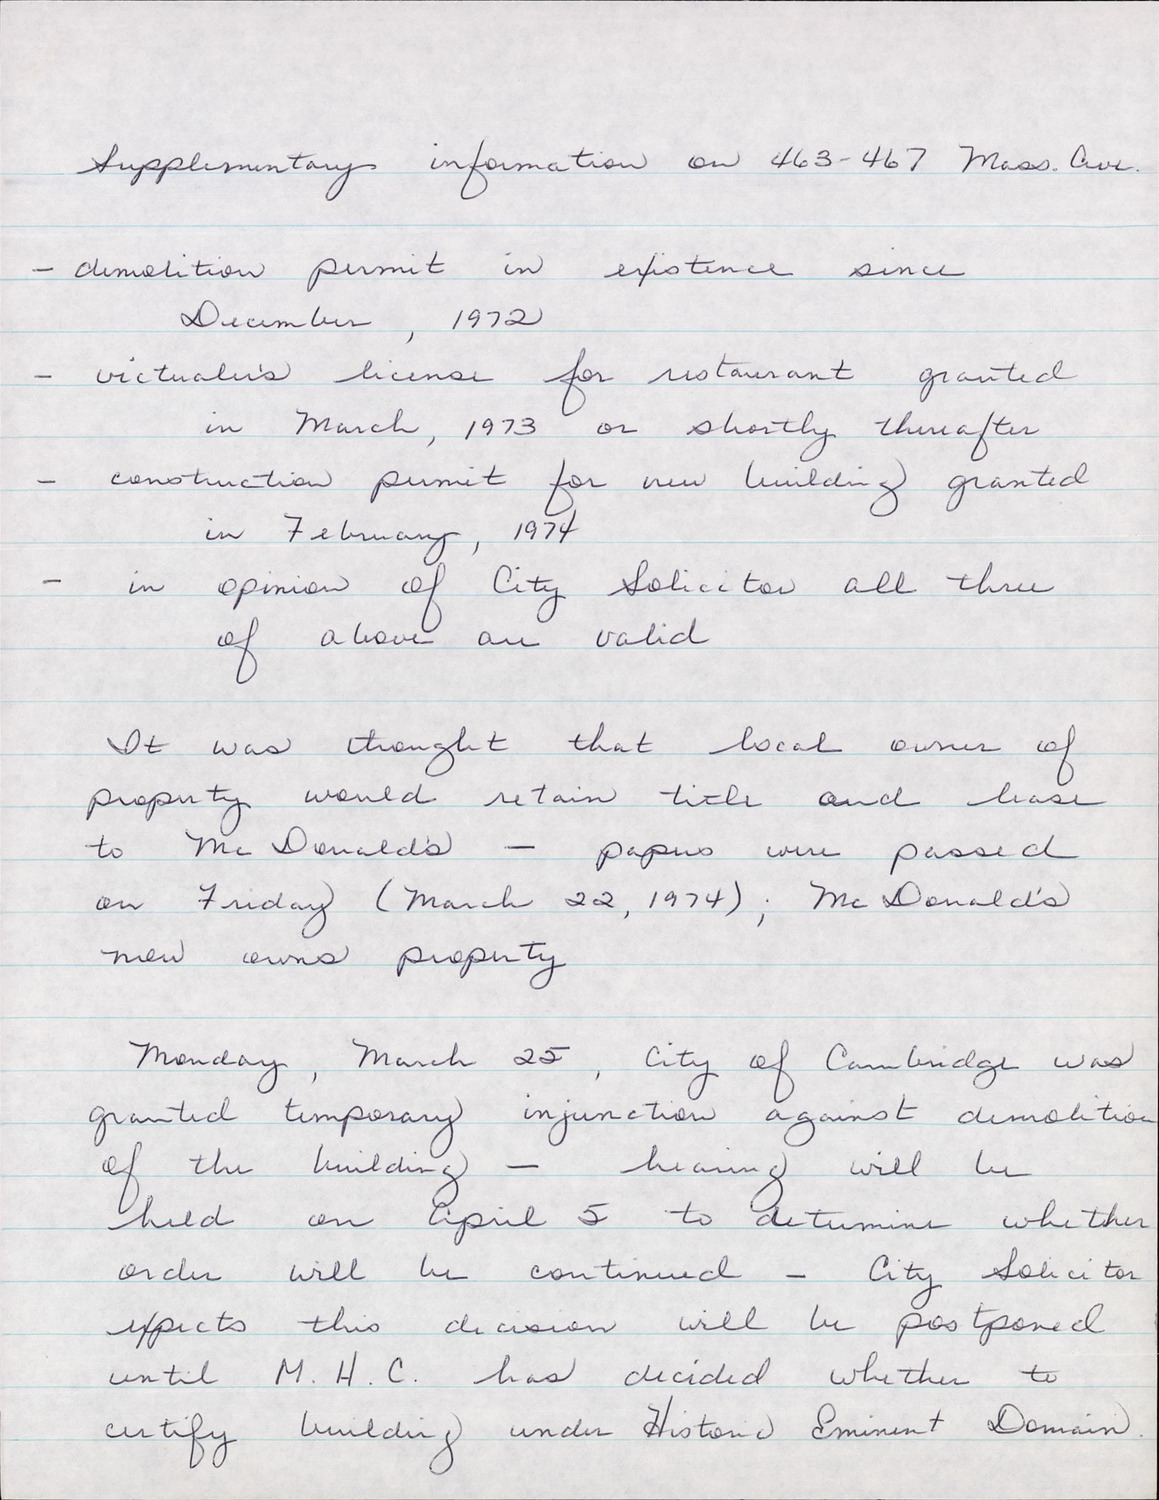 Supplementary information on 463-467 Mass. Ave.
- demolition permit in existence since
December, 1972
- victualer's license for restaurant granted
in March, 1973 or shortly thereafter
- construction permit for new building granted
in February, 1974
- in opinion of City Solicitor all three
of above are valid
It was thought that local owner of
property would retain title and lease
to McDonald's - papers were passed
on Friday (March 22, 1974); McDonald's
now owns property
Monday, March 25, City of Cambridge was
granted temporary injunction against demolition
of the building - hearing will be
held on April 5 to determine whether
order will be continued - City Solicitor
expects this decision will be postponed
until M.H.C. has decided whether to
certify building under Historic Eminent Domain.